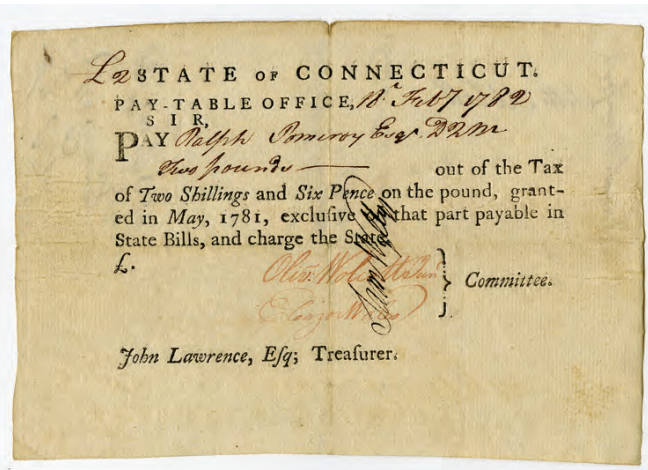 L2 STATE OF CONNECTICUT.
PAY-TABLE OFFICE, 18th Feby 1782
SIR,
PAY Ralph Pomeroy Esqr. D2M
Two pounds — out of the Tax
of Two Shillings and Six Pence on the pound, grant-
ed in May, 1781, exclusive that part payable in
State Bills, and charge the State
£.
Olivr. Wolcott Junr } Committee.
John Lawrence, Eſq; Treaſurer.